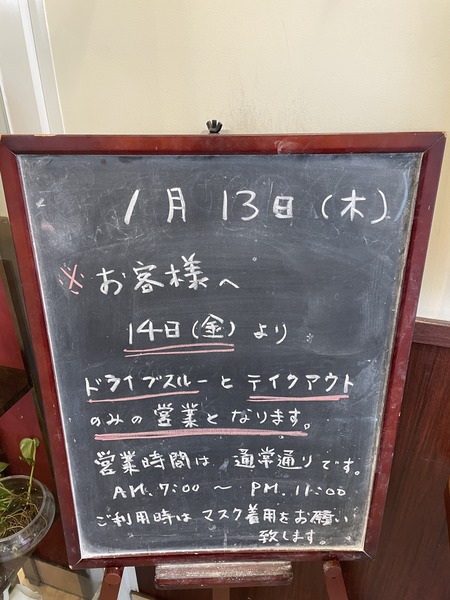 1月 13日 (木)
※ お客様へ
14日(金) より
ドライブスルーと テイクアウト
のみの営業となります。
営業時間は 通常通りです。
AM.7:00 ～ PM.11:00
ご利用時は マスク着用をお願い
致します。